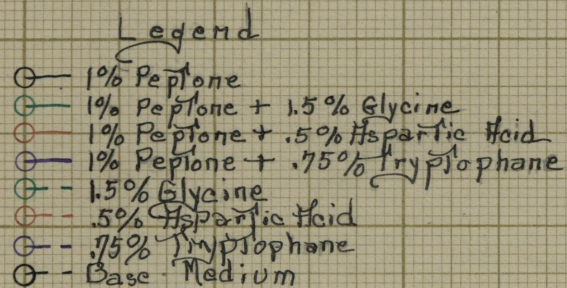 Legend
1% Peptone
1% Peptone + 1.5% Glycine
1% Peptone + .5% Aspartic Acid
1% Peptone + .75% Tryptophane
1.5% Glycine
.5% Aspartic Acid
.75% Tryptophane
Base Medium